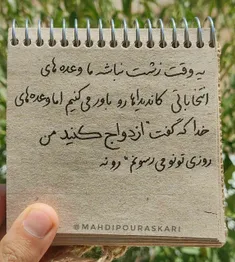 یه وقت زشت نباشه ما وعده های
انتخاباتی کاندیداها رو باور می کنیم اما وعده های
خدا که گفت "ازدواج کنید من
روزی تونو می رسونم" رو نه
@MAHDIPOURASKARI